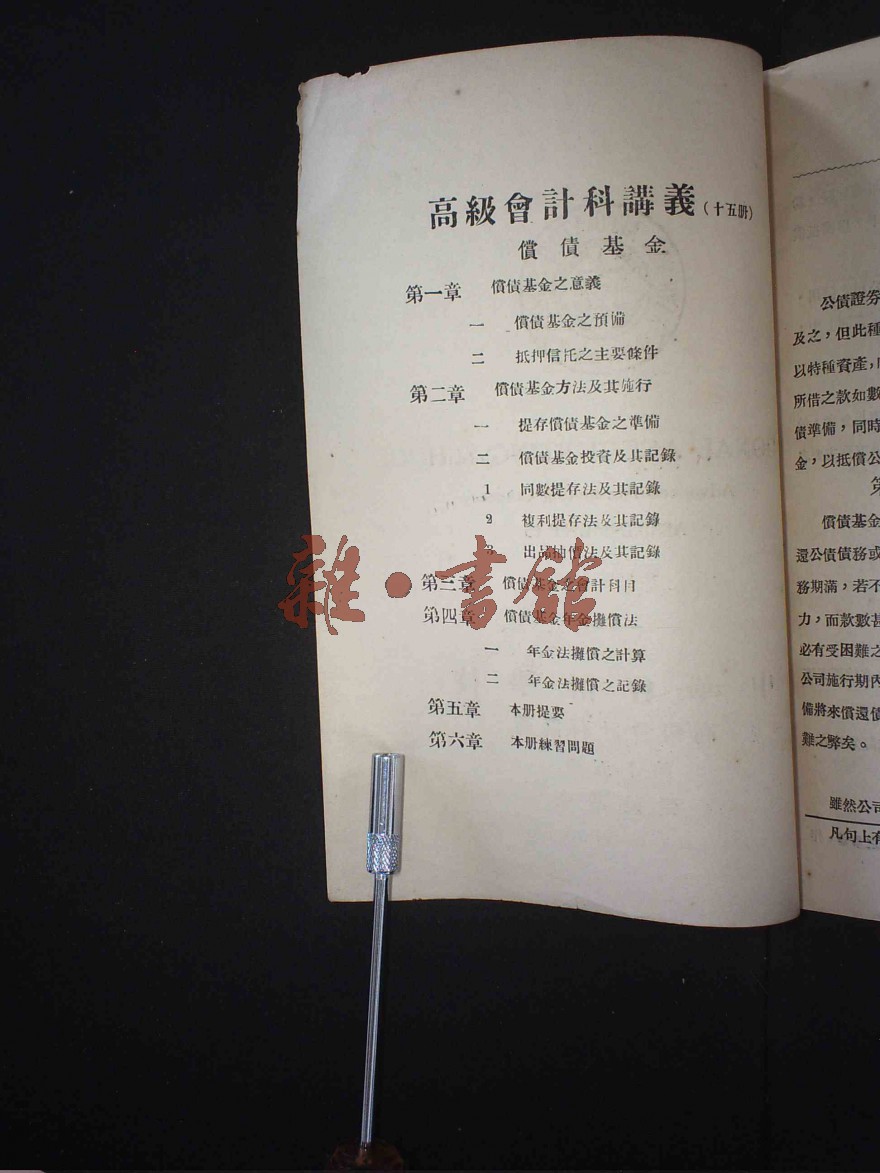 高級會計科講義(十五册)
償債基金
第一章 償債基金之意義
一 償債基金之預備
二 抵押信托之主要條件
第二章 償債基金方法及其施行
一 提存償債基金之準備
二 償債基金投資及其記錄
1 同數提存法及其記錄
2 複利提存法及其記錄
3 出品抽償法及其記錄
第三章 償債基金之會計科目
第四章 償債基金年金攤償法
一 年金法攤償之計算
二 年金法攤償之記錄
第五章 本册提要
第六章 本册練習問題
雜·書館
公債證券
及之，但此種
以特種資產，
所借之款如數
債準備，同時
金，以抵償公
第
償債基金
還公債債務或
務期滿，若不
力，而款數甚
必有受困難之
公司施行期內
備將來償還債
難之弊矣。
雖然公司
凡句上有